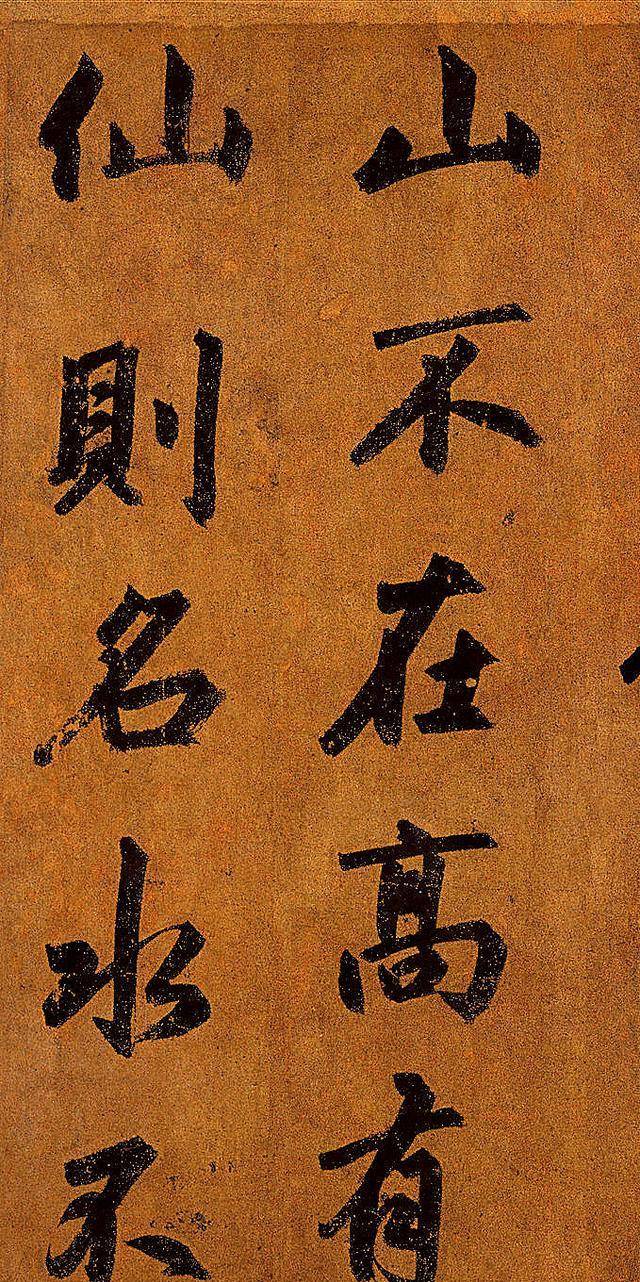 山不在高有
仙則名水不